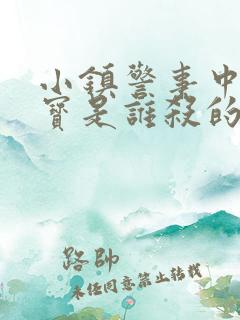 小鎮警事中
寶是誰殺的
路帥
未經同意禁止轉載